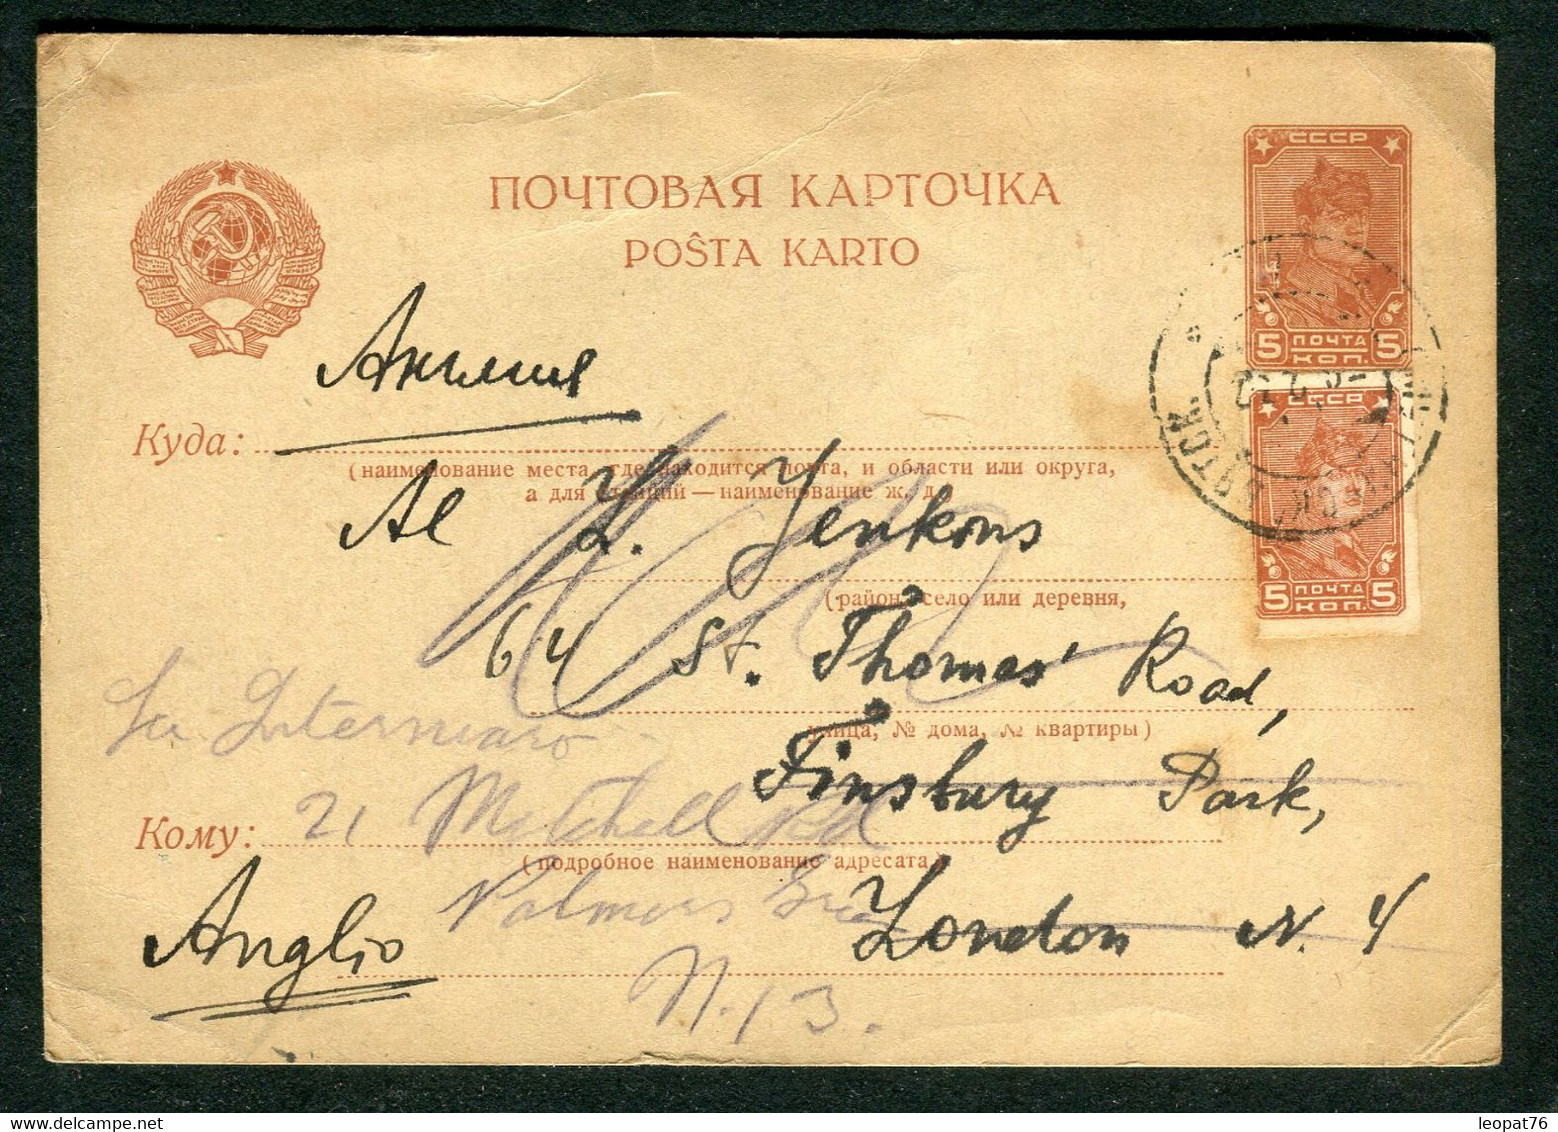 СССР
5 ПОЧТА 5
КОП.
ПОЧТОВАЯ КАРТОЧКА
POŜTA KARTO
Англия
Куда:
(наименование места, где находится почта, и области или округа,
а для станций — наименование ж. д.)
СССР
5 ПОЧТА 5
КОП.
Al L. Jenkons
(район, село или деревня,
64 St. Thomas' Road,
улица, № дома, № квартиры)
Finsbury Park,
La Interniaro
Кому: 21 Mitchell Rd
(подробное наименование адресата)
Palmers
London N. 4
Anglio
N. 13.
leopat76